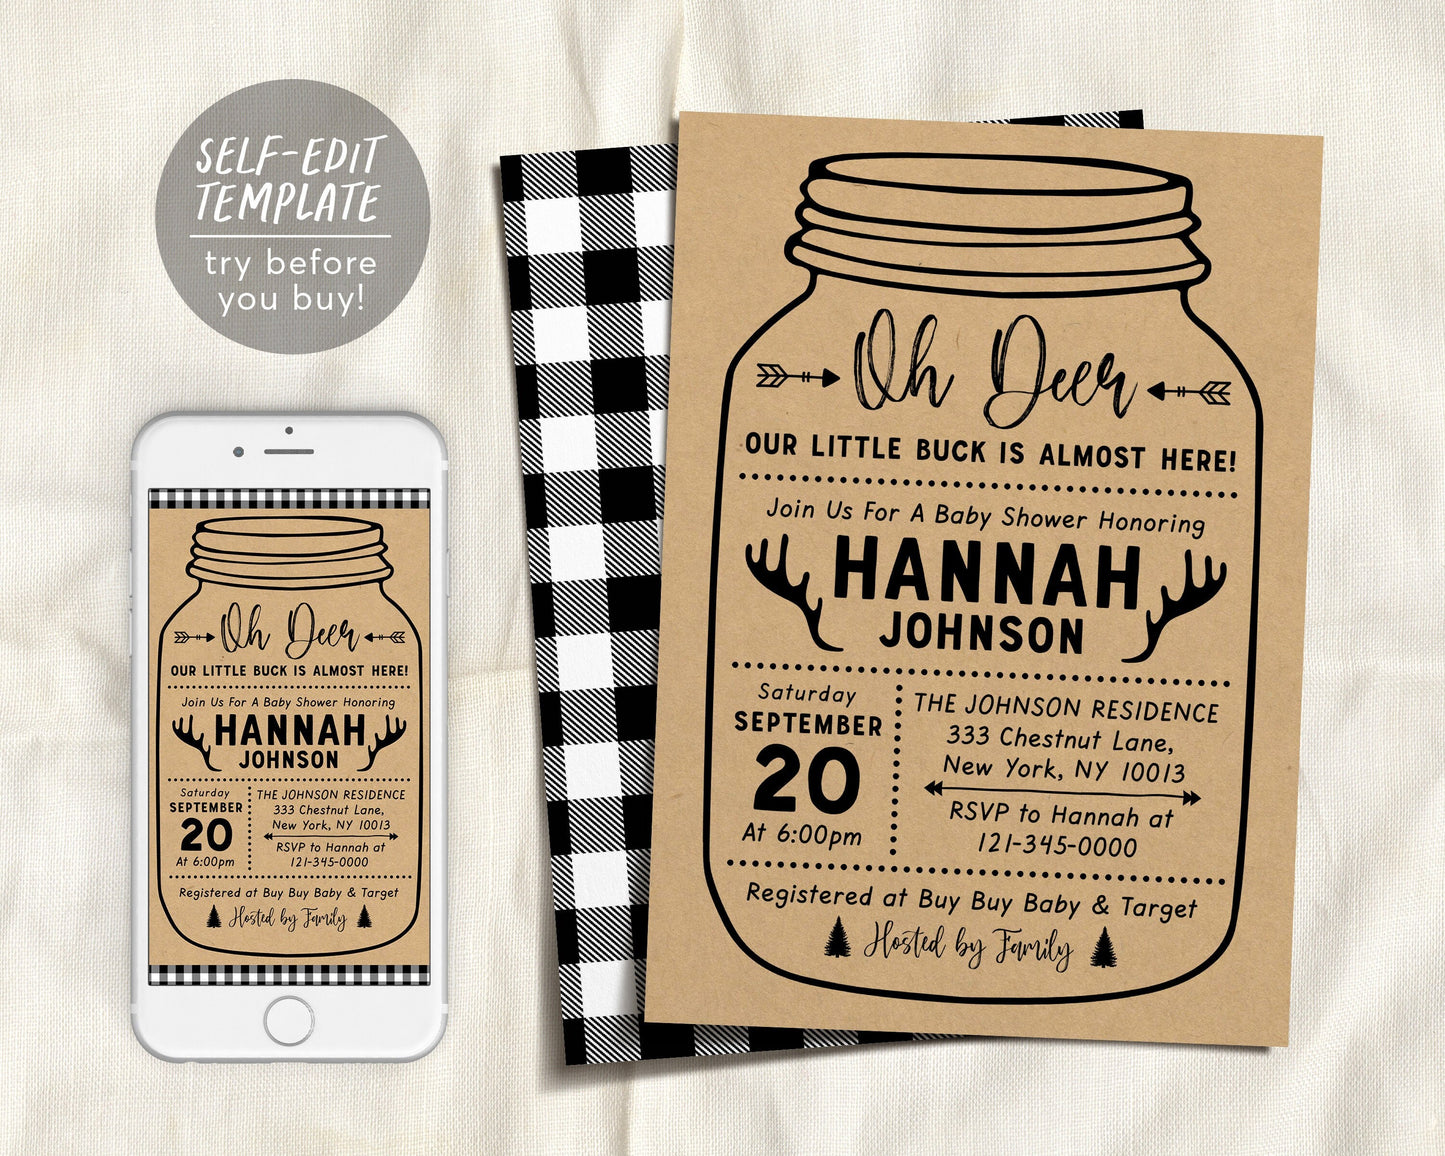 SELF-EDIT
TEMPLATE
try before
you buy!
Oh Deer
OUR LITTLE BUCK IS ALMOST HERE!
Join Us For A Baby Shower Honoring
HANNAH
JOHNSON
Saturday
SEPTEMBER
20
At 6:00pm
THE JOHNSON RESIDENCE
333 Chestnut Lane,
New York, NY 10013
RSVP to Hannah at
121-345-0000
Registered at Buy Buy Baby & Target
Hosted by Family
Oh Deer
OUR LITTLE BUCK IS ALMOST HERE!
Join Us For A Baby Shower Honoring
HANNAH
JOHNSON
Saturday
SEPTEMBER
20
At 6:00pm
THE JOHNSON RESIDENCE
333 Chestnut Lane,
New York, NY 10013
RSVP to Hannah at
121-345-0000
Registered at Buy Buy Baby & Target
Hosted by Family